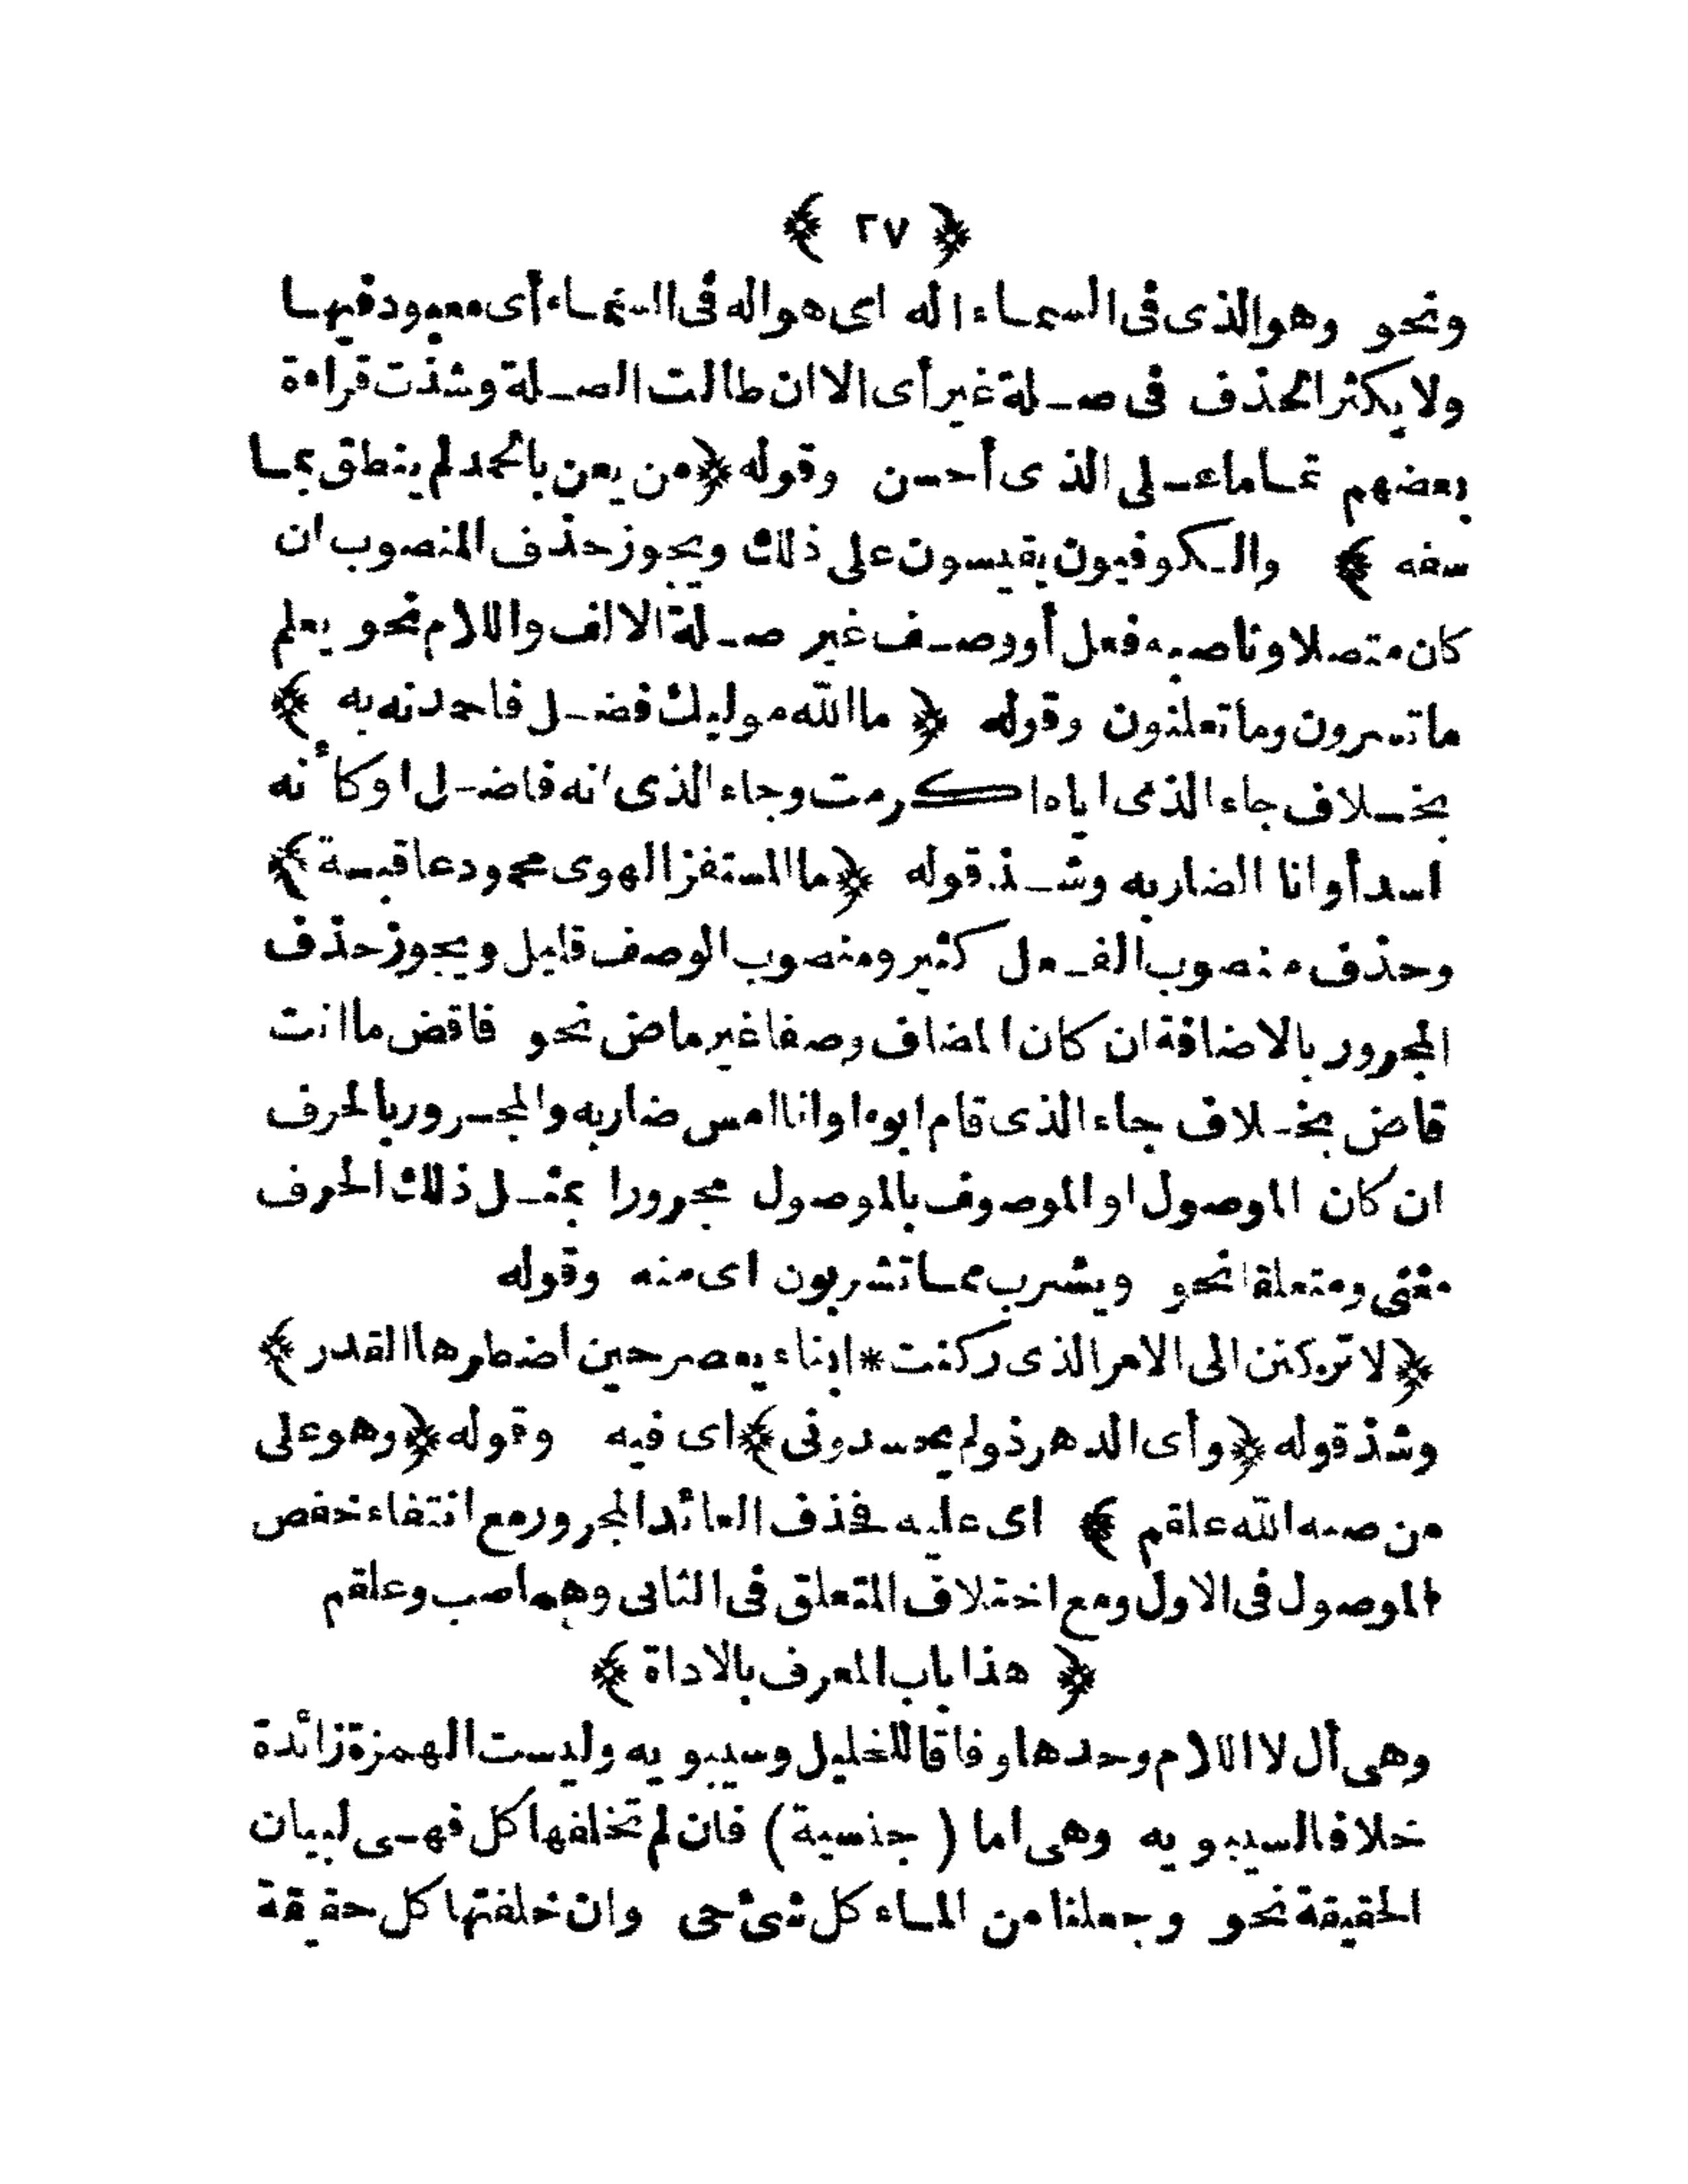 ﴿ ٢٧ ﴾
ونحو وهو الذى فى السماء اله اى هو اله فى السماء أى معبود فيها
ولا يكثر الحذف فى صلة غير أى الا ان طالت الصلة وشذت قراءة
بعضهم تماما على الذى أحسن وقوله ﴿من يعن بالحمد لم ينطق بما
سفه ﴾ والكوفيون يقيسون على ذلك ويجوز حذف المنصوب ان
كان متصلا وناصبه فعل أو وصف غير صلة الالف واللام نحو يعلم
ما تسرون وما تعلنون وقوله ﴿ ما الله موليك فضل فاحمدنه به ﴾
بخلاف جاء الذى اياه اكرمت وجاء الذى انه فاضل او كأنه
اسد أو انا الضاربه وشذ قوله ﴿ما المستفز الهوى محمود عاقبة﴾
وحذف منصوب الفعل كثير ومنصوب الوصف قليل ويجوز حذف
المجرور بالاضافة ان كان المضاف وصفا غير ماض نحو فاقض ما انت
قاض بخلاف جاء الذى قام ابوه او انا امس ضاربه والمجرور بالحرف
ان كان الموصول او الموصوف بالموصول مجرورا بمثل ذلك الحرف
معنى ومتعلقا نحو ويشرب مما تشربون اى منه وقوله
﴿لا تركنن الى الامر الذى ركنت * ابناء يعصر حين اضطرها القدر﴾
وشذ قوله ﴿وأى الدهر ذو لم يحسدونى﴾ اى فيه وقوله ﴿وهو على
من صبه الله علقم ﴾ اى عليه فحذف العائد المجرور مع انتفاء خفض
الموصول فى الاول ومع اختلاف المتعلق فى الثانى وهما صب وعلقم
﴿ هذا باب المعرف بالاداة ﴾
وهى أل لا اللام وحدها وفاقا للخليل وسيبويه وليست الهمزة زائدة
خلافا لسيبويه وهى اما ( جنسية ) فان لم تخلفها كل فهى لبيان
الحقيقة نحو وجعلنا من الماء كل شئ حى وان خلفتها كل حقيقة